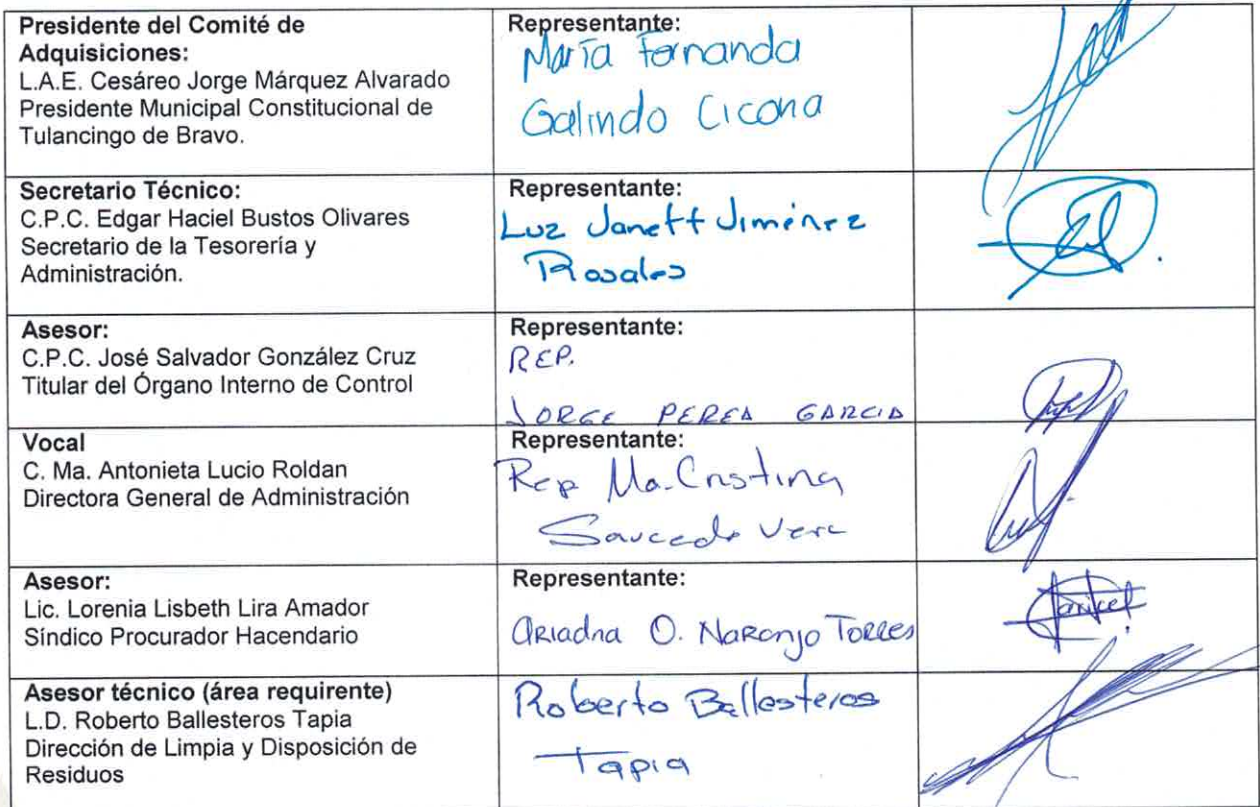 Presidente del Comité de
Adquisiciones:
L.A.E. Cesáreo Jorge Márquez Alvarado
Presidente Municipal Constitucional de
Tulancingo de Bravo.
Representante:
María Fernanda
Galindo Cicona
Secretario Técnico:
C.P.C. Edgar Haciel Bustos Olivares
Secretario de la Tesorería y
Administración.
Representante:
Luz Janett Jiménez
Rosales
Asesor:
C.P.C. José Salvador González Cruz
Titular del Órgano Interno de Control
Representante:
REP.
JORGE PEREA GARCIA
Vocal
C. Ma. Antonieta Lucio Roldan
Directora General de Administración
Representante:
Rep Ma. Cristina
Saucedo Vera
Asesor:
Lic. Lorenia Lisbeth Lira Amador
Síndico Procurador Hacendario
Representante:
Ariadna O. Naranjo Torres
Asesor técnico (área requirente)
L.D. Roberto Ballesteros Tapia
Dirección de Limpia y Disposición de
Residuos
Roberto Ballesteros
Tapia